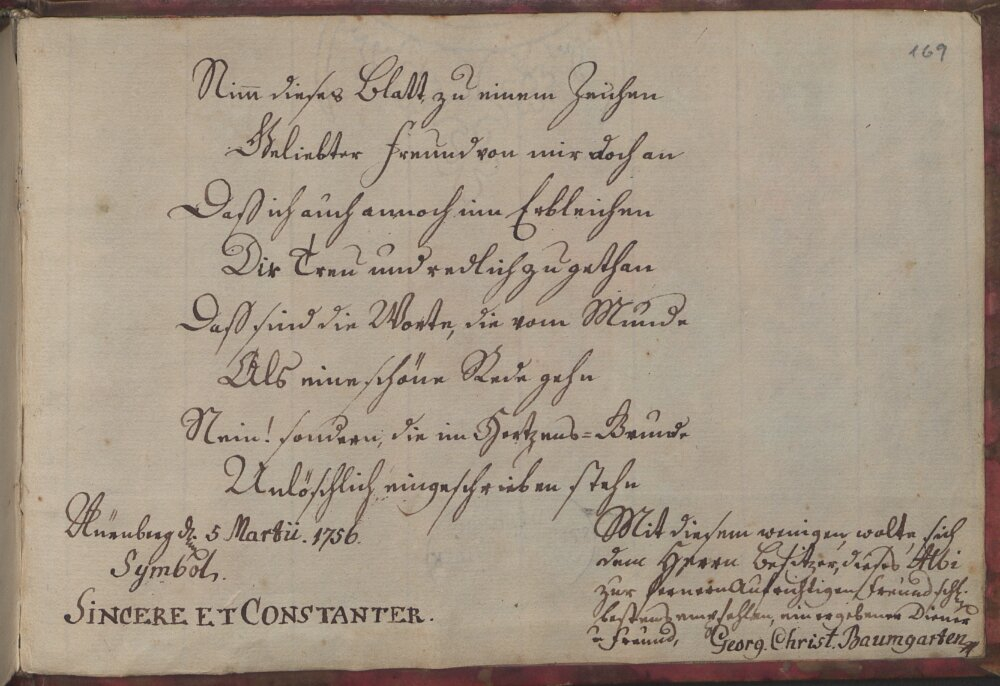 169
Nimm dieses Blatt, zu einem Zeichen
Geliebter Freund von mir doch an
Daß ich auch annoch im Erbleichen
Dir Treu und redlich zugethan
Daß sind die Worte, die vom Munde
Als eine schöne Rede gehn
Nein! sondern, die im Hertzens-Grunde
Unlöschlich eingeschrieben stehn
Nürnberg d. 5 Martii. 1756.
Symbol.
SINCERE ET CONSTANTER.
Mit diesem wenigen wolte, sich
dem Herrn Besitzer, dieses Albi
zur fernern Aufrichtigen Freundschfl.
bestens empfehlen, ein ergebener Diener
u. Freund, Georg. Christ. Baumgarten